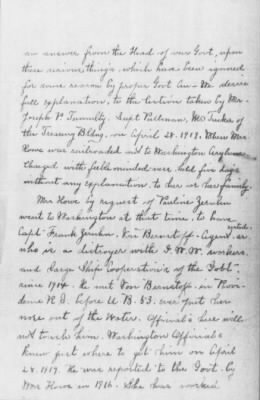 an answer from the Head of our Govt, upon
these serious things, which have been ignored
for some reason by proper Govt We desire
full explanation, to the action taken by Mr.
Joseph P. Tumulty. Supt Pullman, McTucker of
the Treasury Bldng. on April 28. 1918. When Mrs.
Howe was railroaded into Washington Asylum
Charged with feeble minded. was held five days
without any explanation to her or her family.
Mrs Howe by request of Pauline Zeruhn
went to Washington at that time. to have
Capt. Frank Zeruhn. Von Bernstoff. Agent arrested.
who is a distroyer with I.W.W. workers.
and Large Ship Cooperation's of the Gobt.
since 1914. He met Von Bernstoff in Provi
dence R.I. before U B. 53. ever put her
nose out of the Water. Official's here will
not touch him. Washington Officials
knew just where to get him on April
28. 1918. He was reported to the Govt. by
Mrs Howe in 1916. She has worked